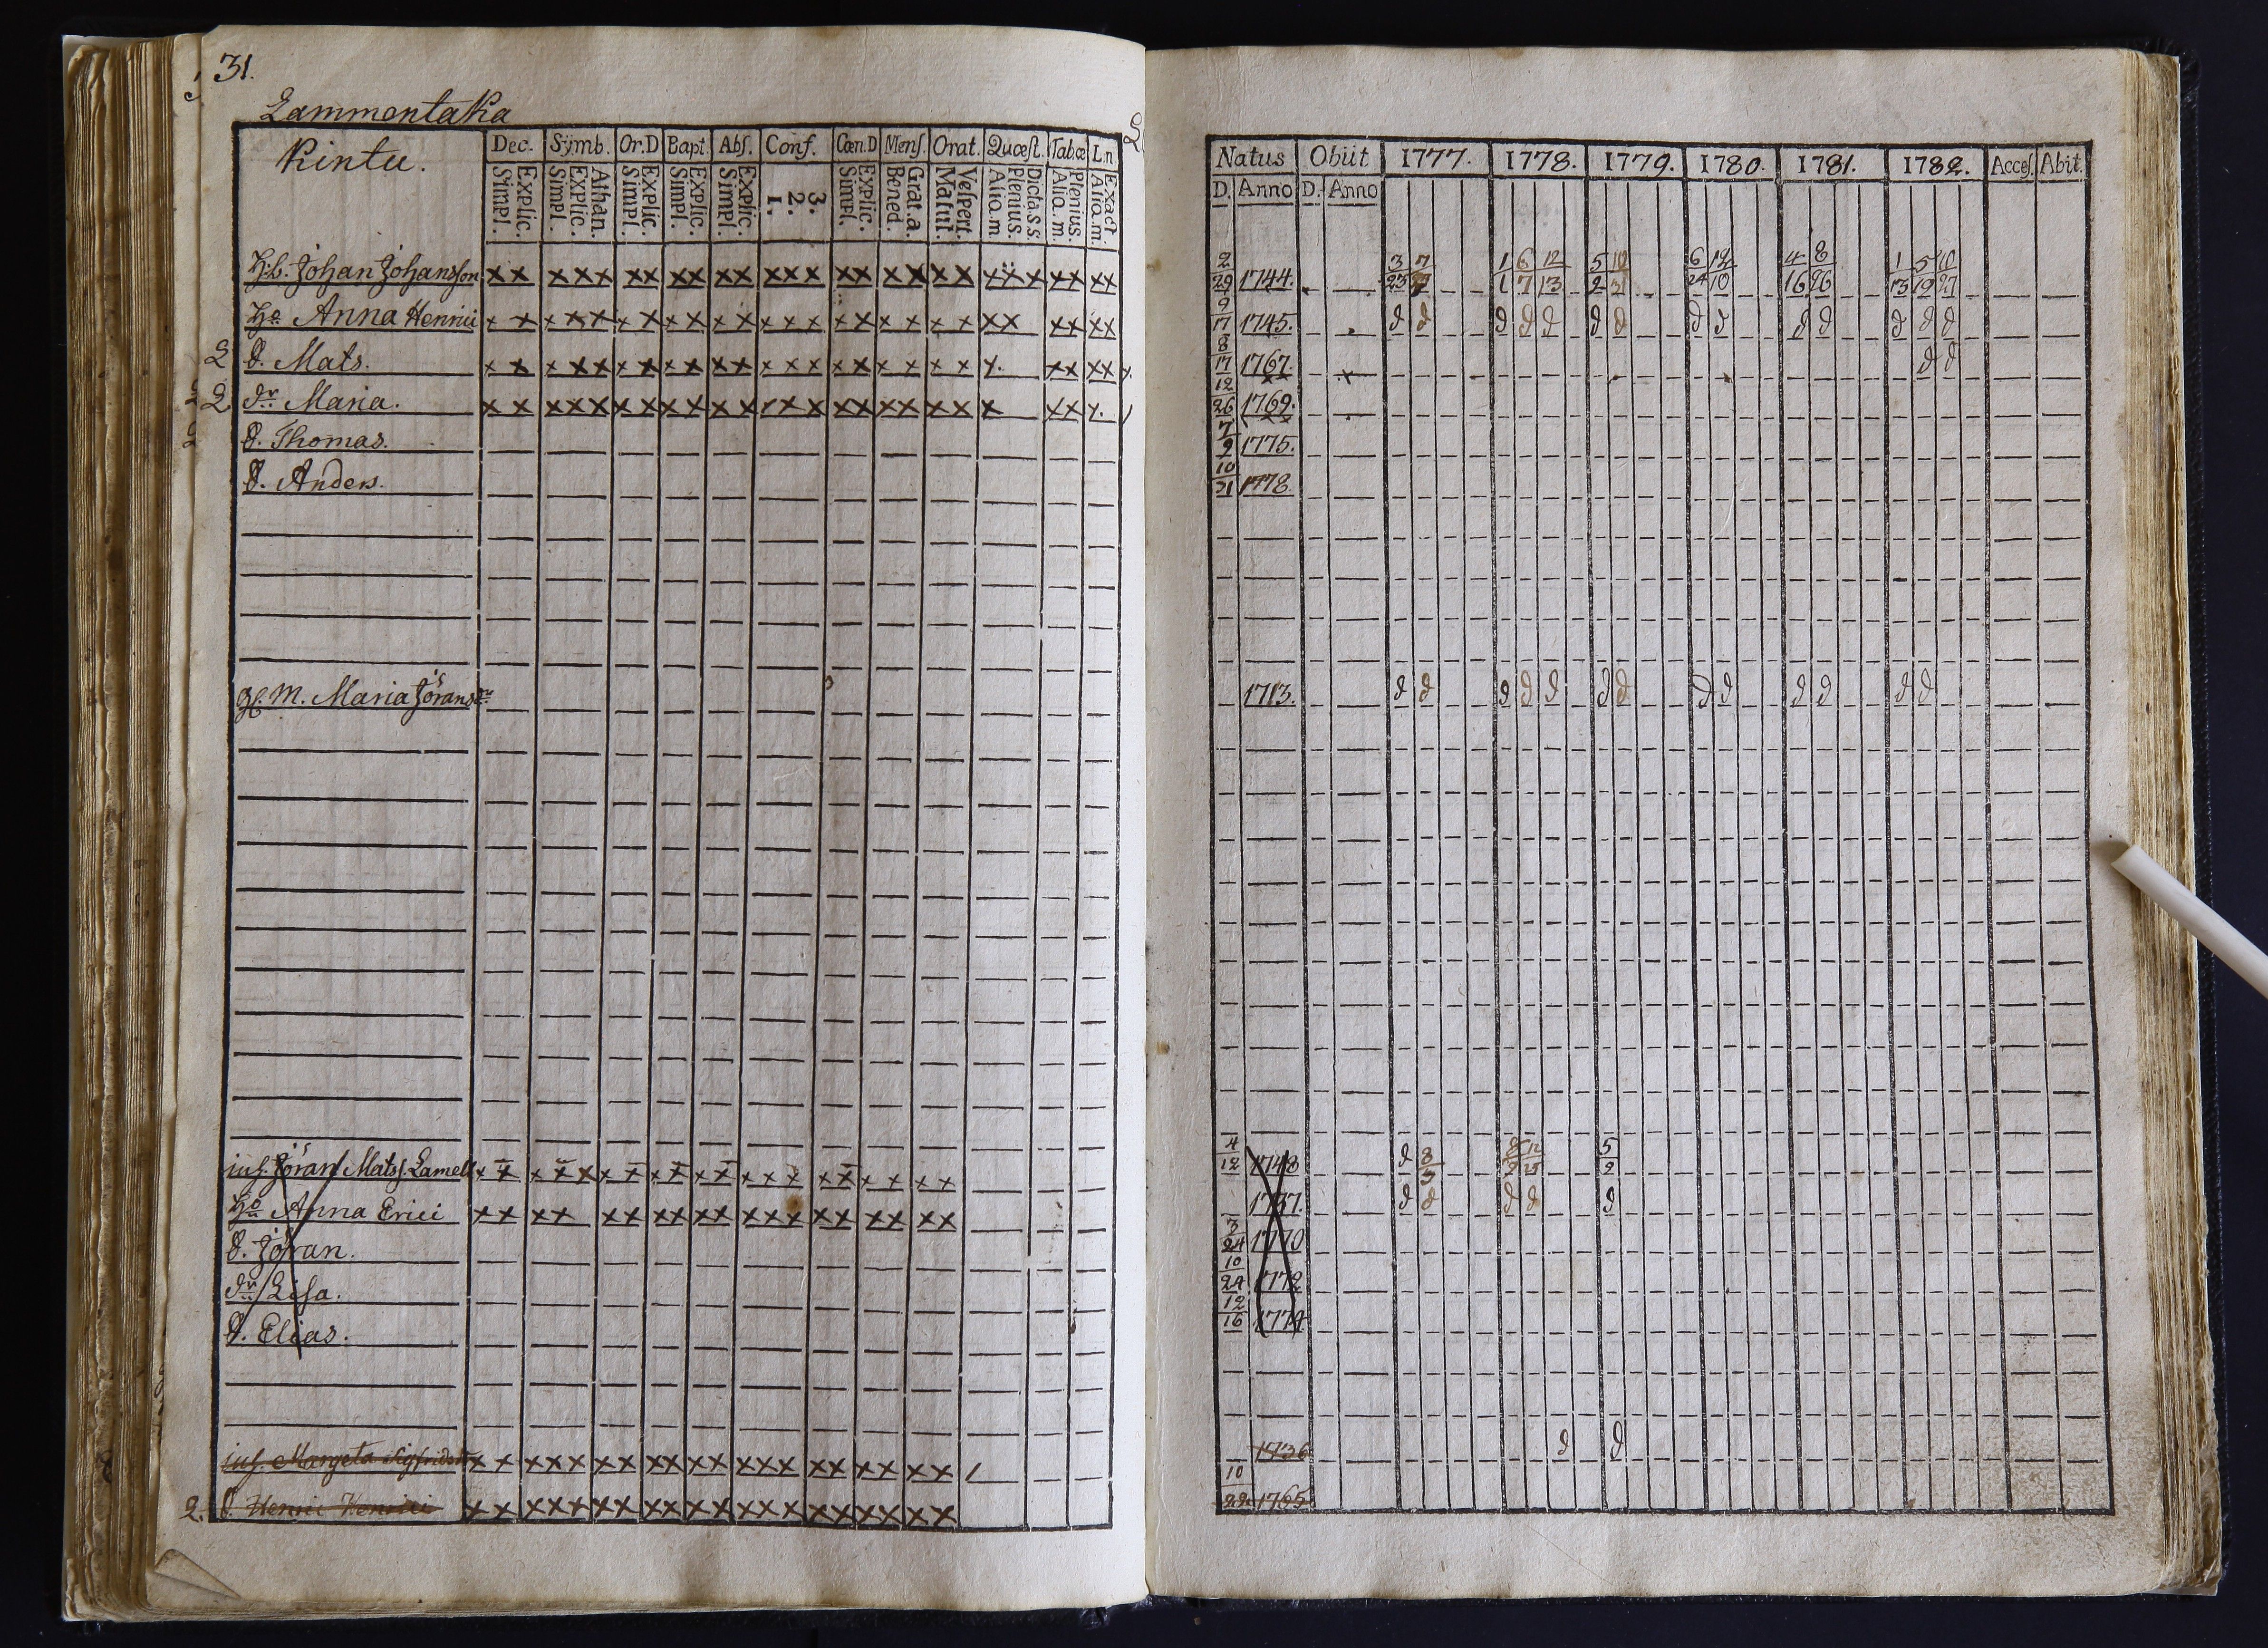 31.
Lammentaka
Kintu.
Dec. Sÿmb. Or.D Bapt. Abſ. Conf. Cœn.D Menſ. Orat. Quœſt. Tab.œ L.n
Simpl. Explic. Simpl. Explic. Athan. Simpl. Explic. Simpl. Explic. Simpl. Explic. 1. 2. 3. Simpl. Explic. Bened. Grat.a. Matut. Veſpert. Alio.m. Plenius. Dicta.s.s. Alio.m. Plenius. Alio.m. Exact
H.b. Johan Johansson x x x x x x x x x x x x x x x x x x x x x x x x x x x
Ho. Anna Henrici x x x x x x x x x x x x x x x x x x x x x x x x x x
S. Mats. x x x x x x x x x x x x x x x x x x x x x. x x x x
dr. Maria. x x x x x x x x x x x x x x x x x x x x x x x x.
S. Thomas.
S. Anders.
M. Maria Jöransdr
inh. Jöran Matss. Lamell x x x x x x x x x x x x x x x x x x x x
Ho Anna Erici x x x x x x x x x x x x x x x x x x x
S. Jöran.
dr Lisa.
S. Elias.
inh. Margeta Sigfridsdr x x x x x x x x x x x x x x x x x x x x /
2. S. Henric Henrici x x x x x x x x x x x x x x x x x x x x
Natus Obiit 1777. 1778. 1779. 1780. 1781. 1782. Acceſ. Abit.
D. Anno D. Anno
2/29 1744. 3/23 7 1/1 6/7 12/13 5/2 10/31 6/24 12/10 4/16 8/26 1/13 5/19 10/27
9/17 1745. d d d d d d d d d d d d d d
8/17 1767. d d
12/26 1769.
7/9 1775.
10/31 1778.
1713. d d d d d d d d d d d d d
4/12 1748 d 8/3 12 5/2
1737. d d d d d
3/24 1770
10/24 1772
12/16 1774
1736 d d
10/22 1765